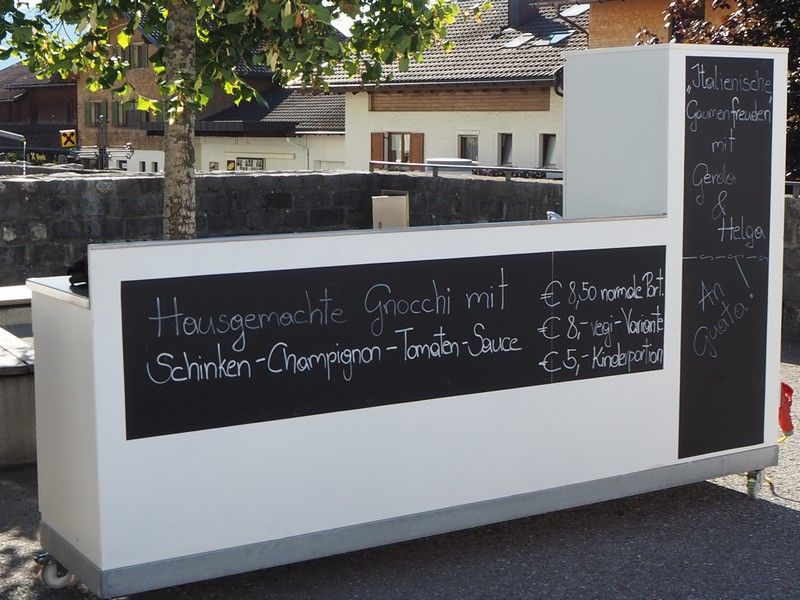 Hausgemachte Gnocchi mit
Schinken-Champignon-Tomaten-Sauce
€ 8,50 normale Port.
€ 8,- vegi-Variante
€ 5,- Kinderportion
„Italienische
Gaumenfreuden"
mit
Gerda
&
Helga
An
Guata!